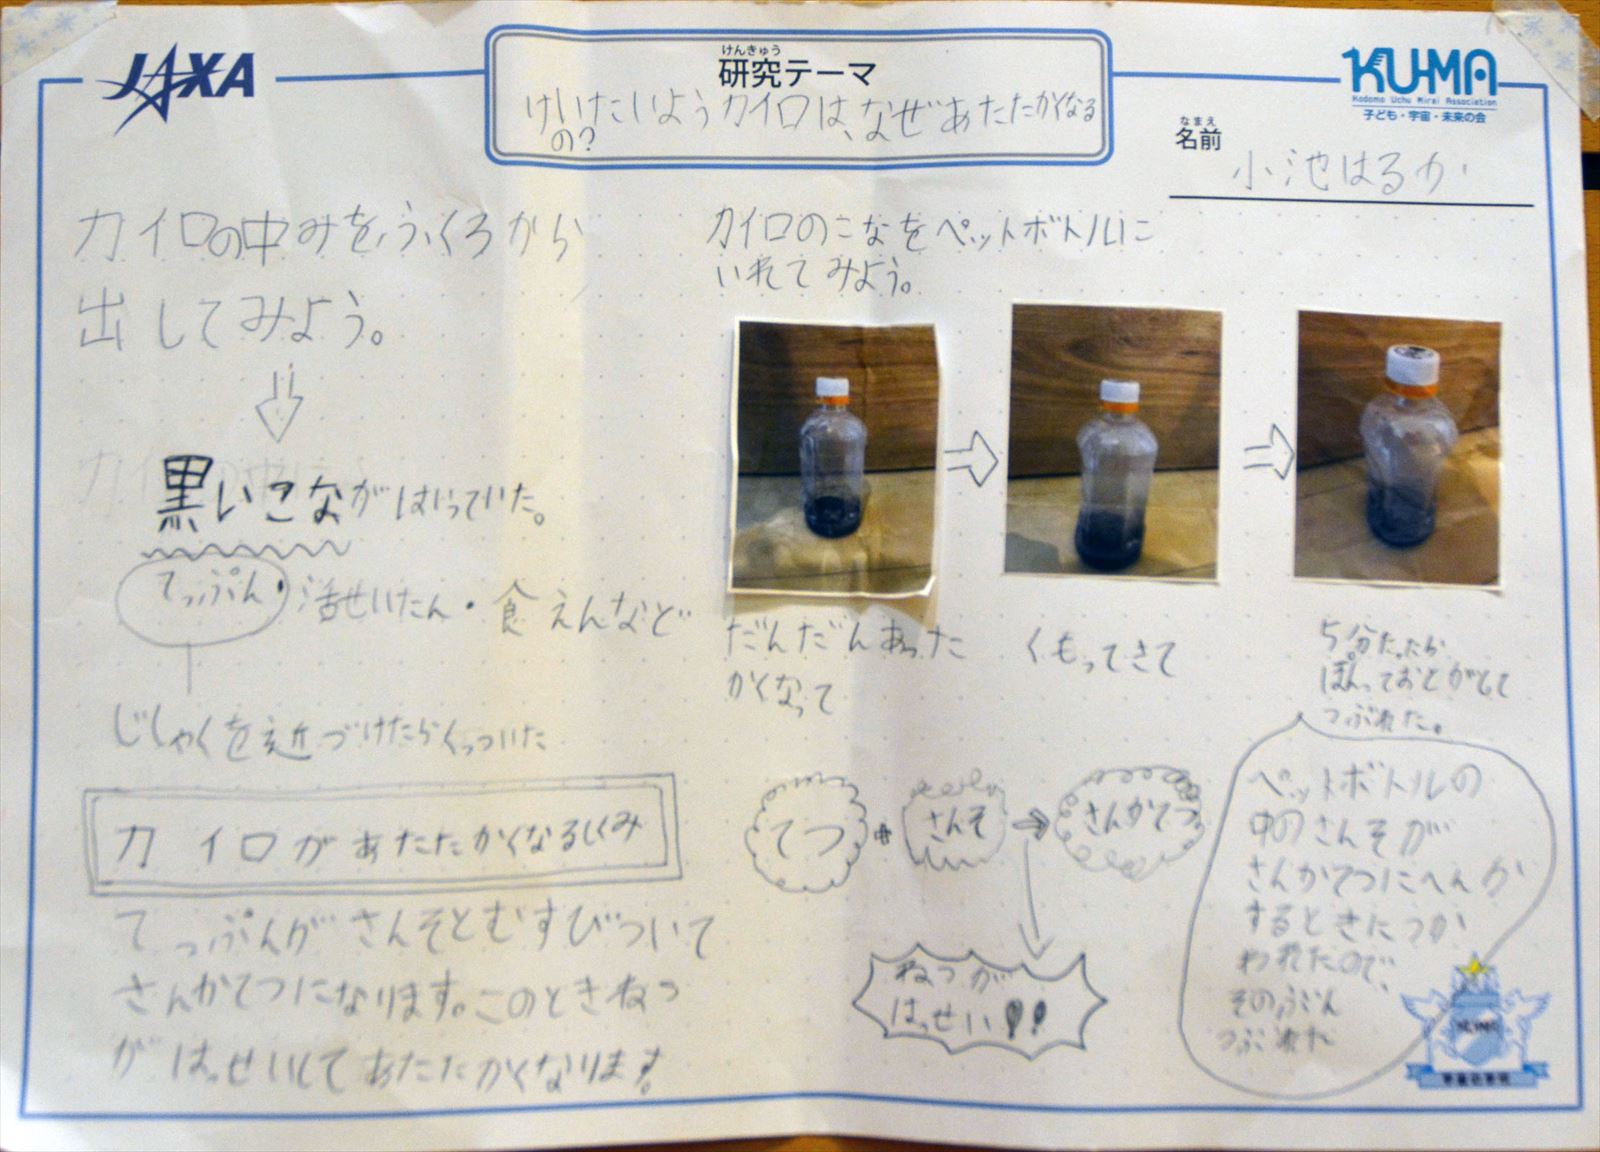 JAXA
けんきゅう
研究テーマ
けいたいようカイロは、なぜあたたかくなる
の?
KU-MA
Kodomo Uchu Mirai Association
子ども・宇宙・未来の会
なまえ
名前
小池はるか
カイロの中みをふくろから
出してみよう。
黒いこながはいっていた。
てっぷん・活せいたん・食えんなど
じしゃくを近づけたらくっついた
カイロがあたたかくなるしくみ
てっぷんがさんそとむすびついて
さんかてつになります。このときねつ
がはっせいしてあたたかくなります。
カイロのこなをペットボトルに
いれてみよう。
だんだんあった
かくなって
くもってきて
5分たったら
ぽんっておとがして
つぶれた。
てつ+さんそ→さんかてつ
ねつが
はっせい!!
ペットボトルの
中のさんそが
さんかてつにへんか
するときにつか
われたので、
そのぶん
つぶれた
KU-MA